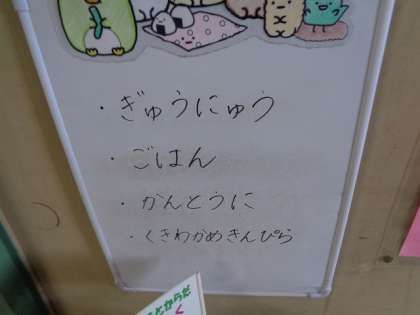 ・ぎゅうにゅう
・ごはん
・かんとうに
・くきわかめきんぴら
とからだ
く